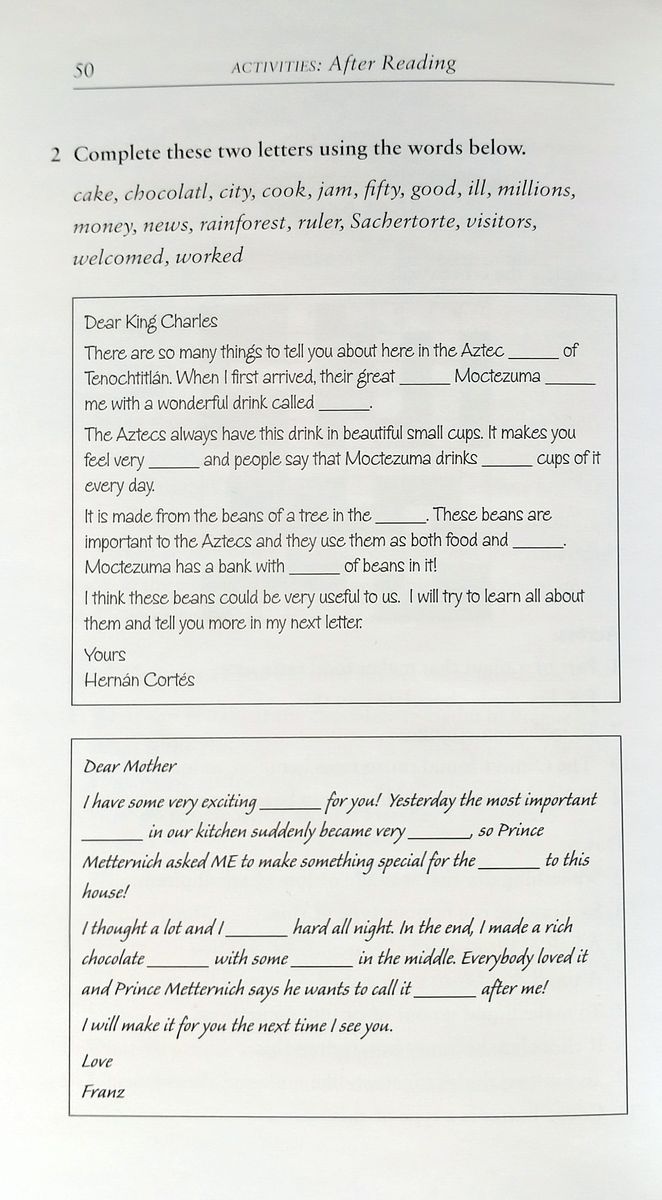 50
ACTIVITIES: After Reading
2 Complete these two letters using the words below.
cake, chocolatl, city, cook, jam, fifty, good, ill, millions,
money, news, rainforest, ruler, Sachertorte, visitors,
welcomed, worked
Dear King Charles
There are so many things to tell you about here in the Aztec ______ of
Tenochtitlán. When I first arrived, their great ______ Moctezuma ______
me with a wonderful drink called ______.
The Aztecs always have this drink in beautiful small cups. It makes you
feel very ______ and people say that Moctezuma drinks ______ cups of it
every day.
It is made from the beans of a tree in the ______. These beans are
important to the Aztecs and they use them as both food and ______.
Moctezuma has a bank with ______ of beans in it!
I think these beans could be very useful to us. I will try to learn all about
them and tell you more in my next letter.
Yours
Hernán Cortés
Dear Mother
I have some very exciting ______ for you! Yesterday the most important
______ in our kitchen suddenly became very ______, so Prince
Metternich asked ME to make something special for the ______ to this
house!
I thought a lot and I ______ hard all night. In the end, I made a rich
chocolate ______ with some ______ in the middle. Everybody loved it
and Prince Metternich says he wants to call it ______ after me!
I will make it for you the next time I see you.
Love
Franz